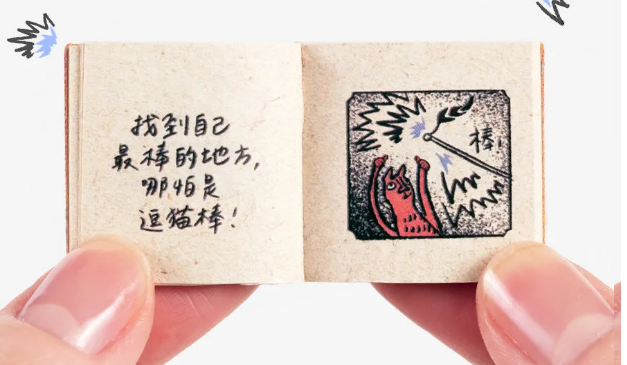 找到自己
最棒的地方,
哪怕是
逗猫棒!
棒!